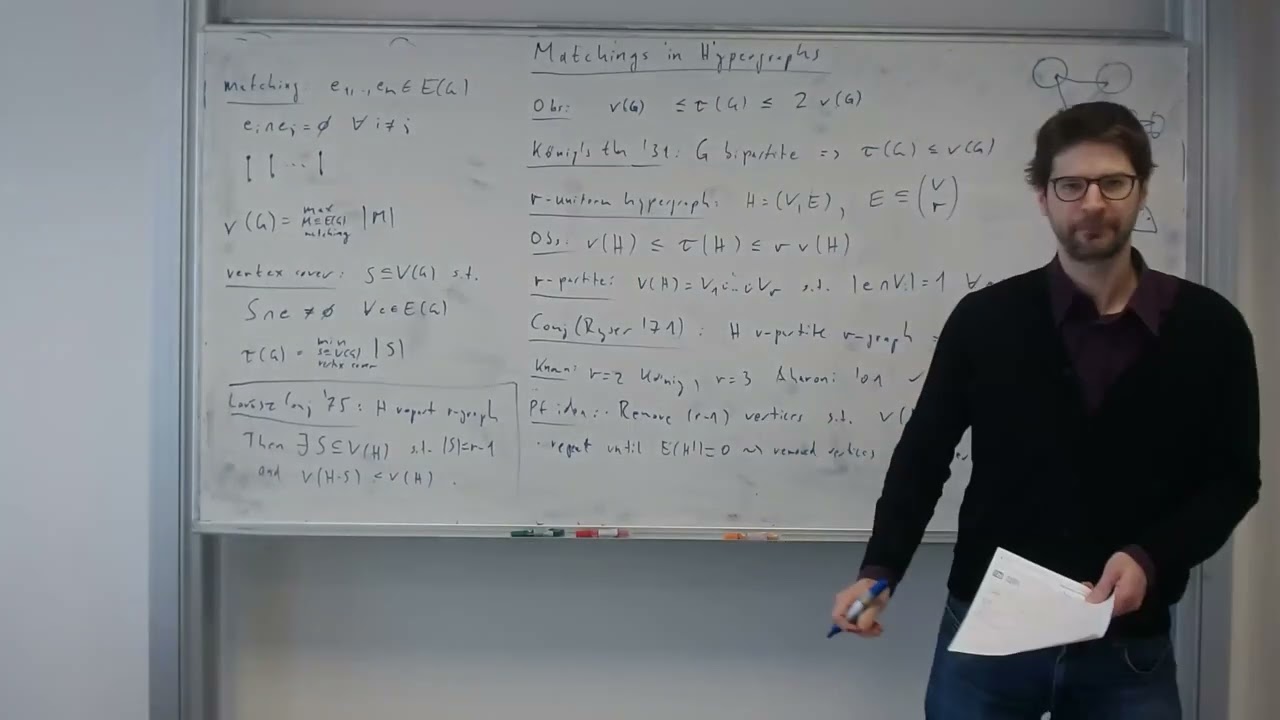 Matchings in Hypergraphs
matching: e₁,..,eₙ ∈ E(G)
eᵢ∩eⱼ=∅ ∀ i≠j
ν(G) = max M⊆E(G) matching |M|
vertex cover: S⊆V(G) s.t.
S∩e ≠ ∅ ∀e∈E(G)
τ(G) = min S⊆V(G) vertex cover |S|
Lovász Conj '75: H r-part r-graph
Then ∃ S⊆V(H) s.t. |S|=r-1
and ν(H-S) < ν(H).
Obs: ν(G) ≤ τ(G) ≤ 2 ν(G)
König's thm '31: G bipartite => τ(G) ≤ ν(G)
r-uniform hypergraph: H=(V,E), E ⊆ (V r)
Obs: ν(H) ≤ τ(H) ≤ r ν(H)
r-partite: V(H)=V₁∪̇..∪̇Vᵣ s.t. |e∩Vᵢ|=1 ∀
Conj (Ryser '71): H r-partite r-graph
Known: r=2 König, r=3 Aharoni '01 ✓
Pf idea: Remove (r-1) vertices s.t. ν(
· repeat until E(H')=0 ⇝ removed vertices